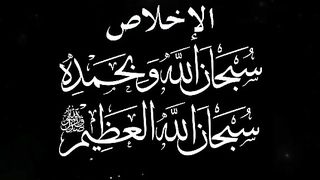 الإخلاص
سُبْحَانَ اللهِ وَبِحَمْدِهِ
سُبْحَانَ اللهِ العَظِيْمِ